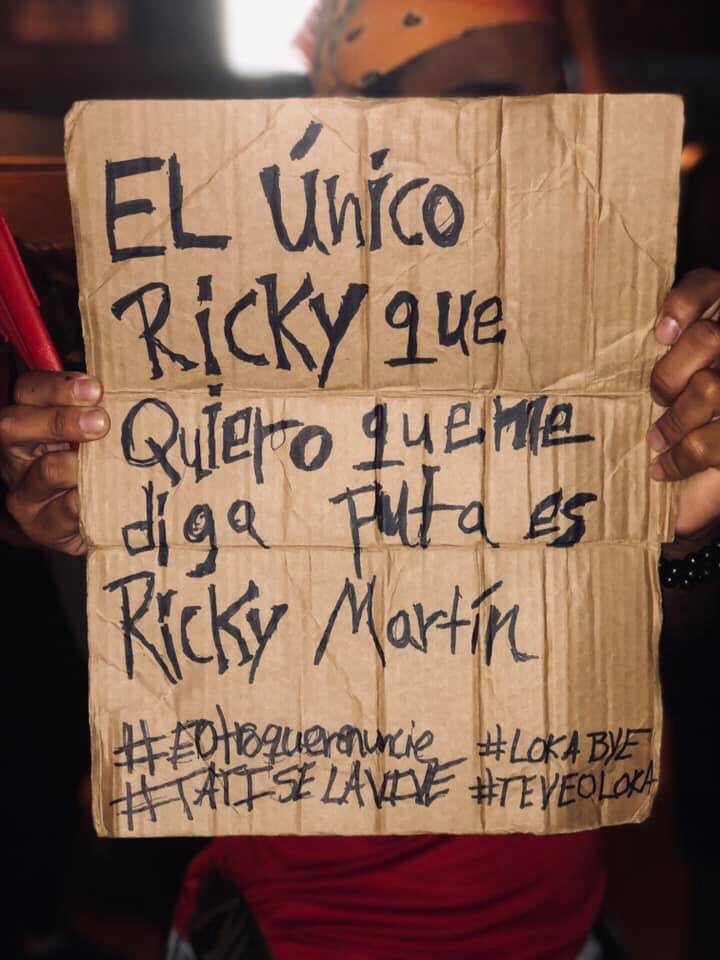 EL Único
Ricky que
Quiero que me
diga puta es
Ricky Martín
#ElOtroquerenuncie #LOKABYE
#TATISELAVIVE #TEVEOLOKA